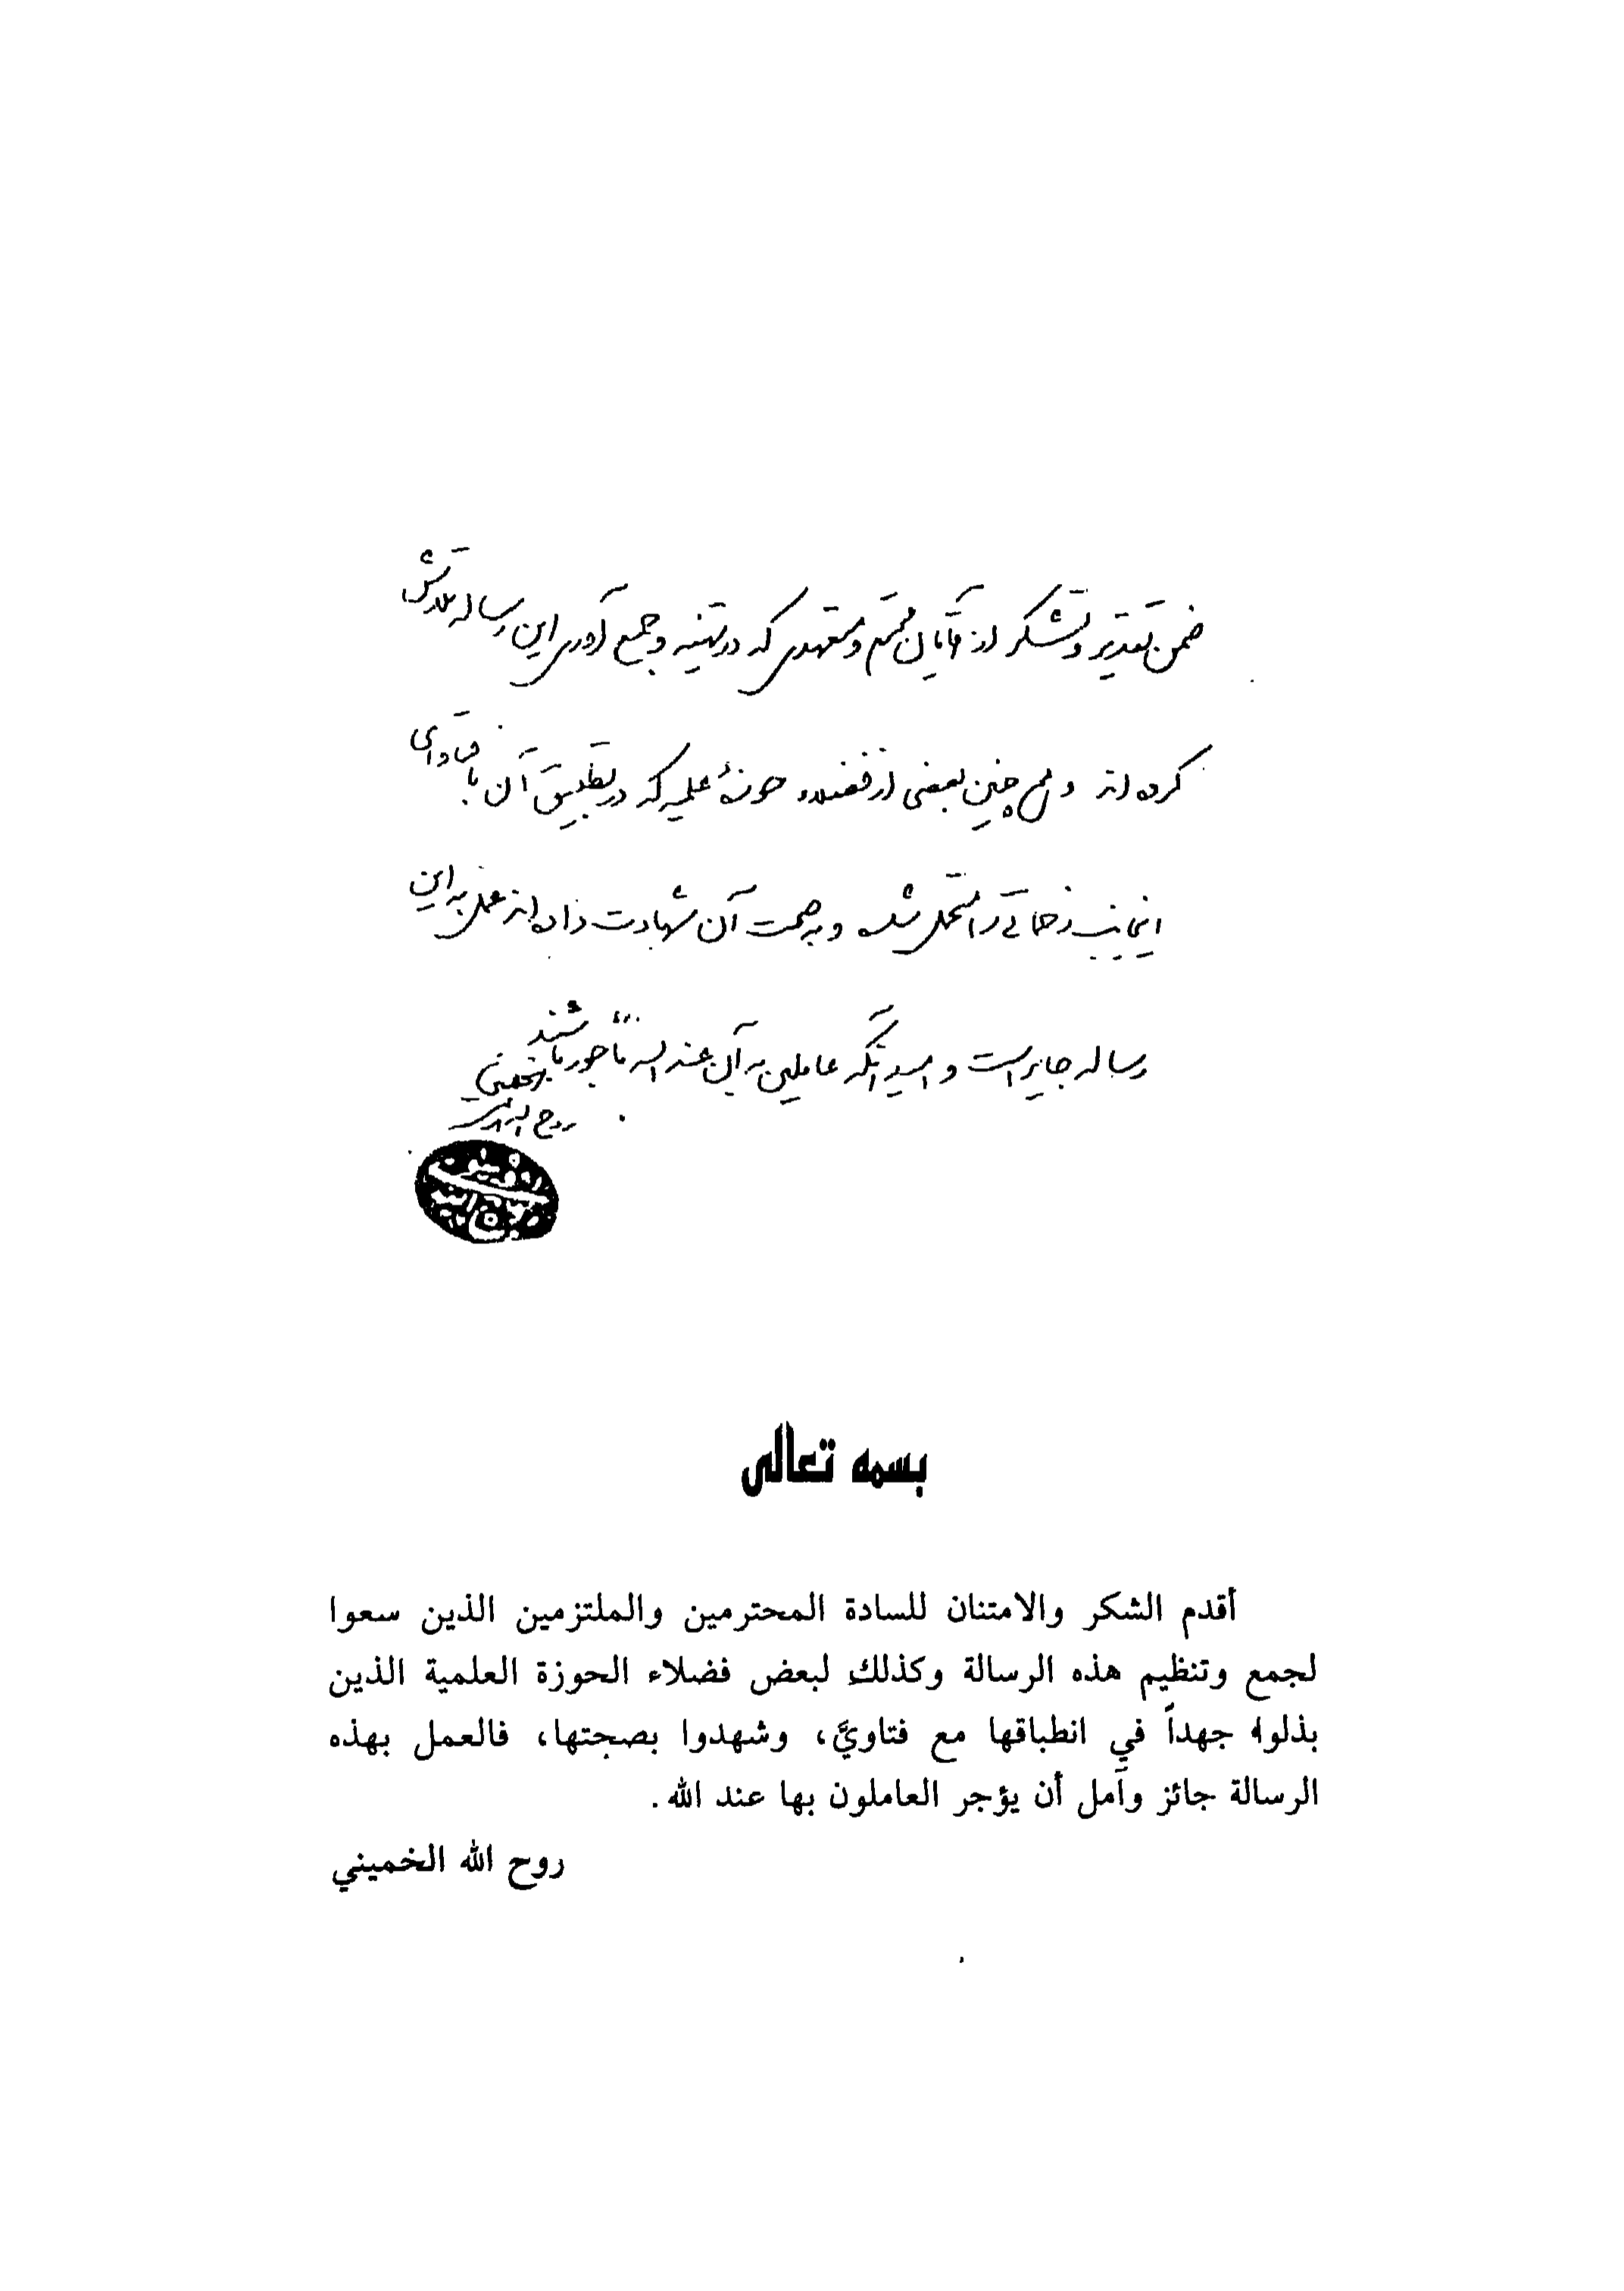 ضمن تقدیر و تشکر از آقایان محترم و متعهدی که در تهیه و جمع آوری این رساله تلاش
کرده اند و هم چنین بعضی از فضلاء حوزهٔ علمیه که در تطبیق آن با فتاوای
اینجانب زحماتی را متحمل شده و به صحت آن شهادت داده اند عمل به این
رساله جایز است و امید آنکه عاملین به آن عند الله مأجور باشند
روح الله الموسوی الخمینی
بسمه تعالى
أقدم الشكر والامتنان للسادة المحترمين والملتزمين الذين سعوا
لجمع وتنظيم هذه الرسالة وكذلك لبعض فضلاء الحوزة العلمية الذين
بذلوا جهداً في انطباقها مع فتاويَّ، وشهدوا بصحتها، فالعمل بهذه
الرسالة جائز وآمل أن يؤجر العاملون بها عند الله.
روح الله الخميني